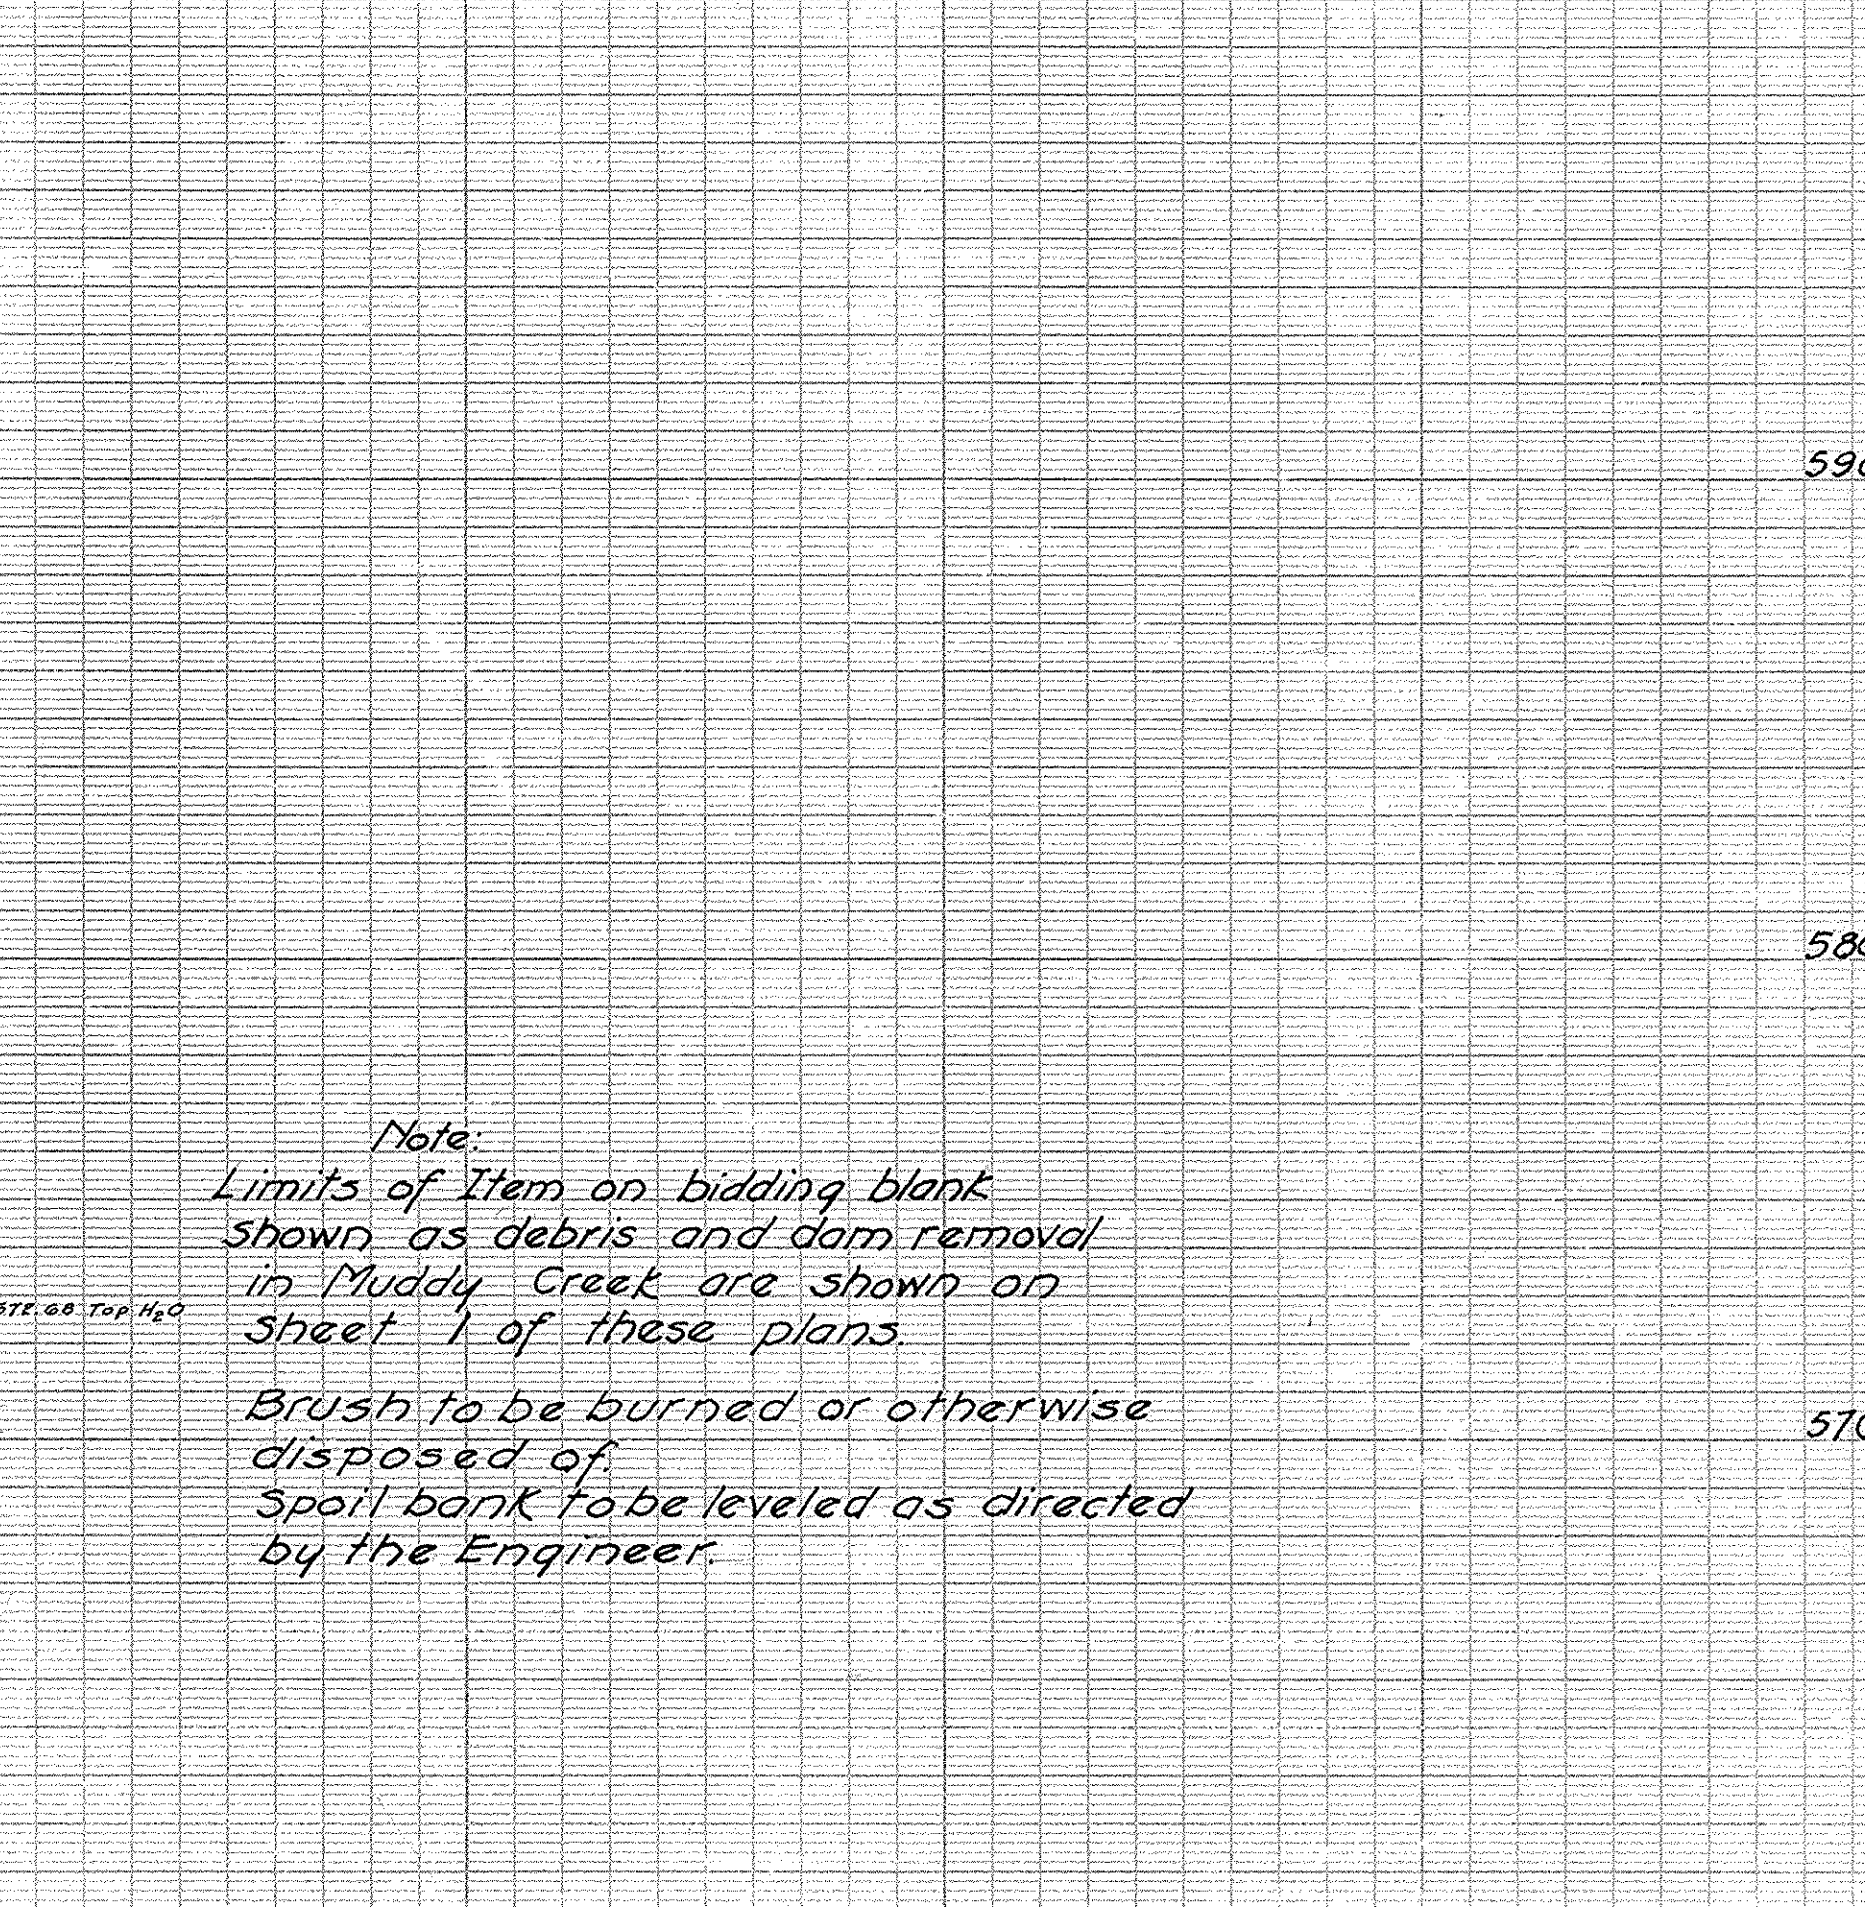 590
580
Note:
Limits of Item on bidding blank
shown as debris and dam removal
in Muddy Creek are shown on
572.68 Top H₂O
sheet 1 of these plans.
Brush to be burned or otherwise
570
disposed of.
Spoil bank to be leveled as directed
by the Engineer.